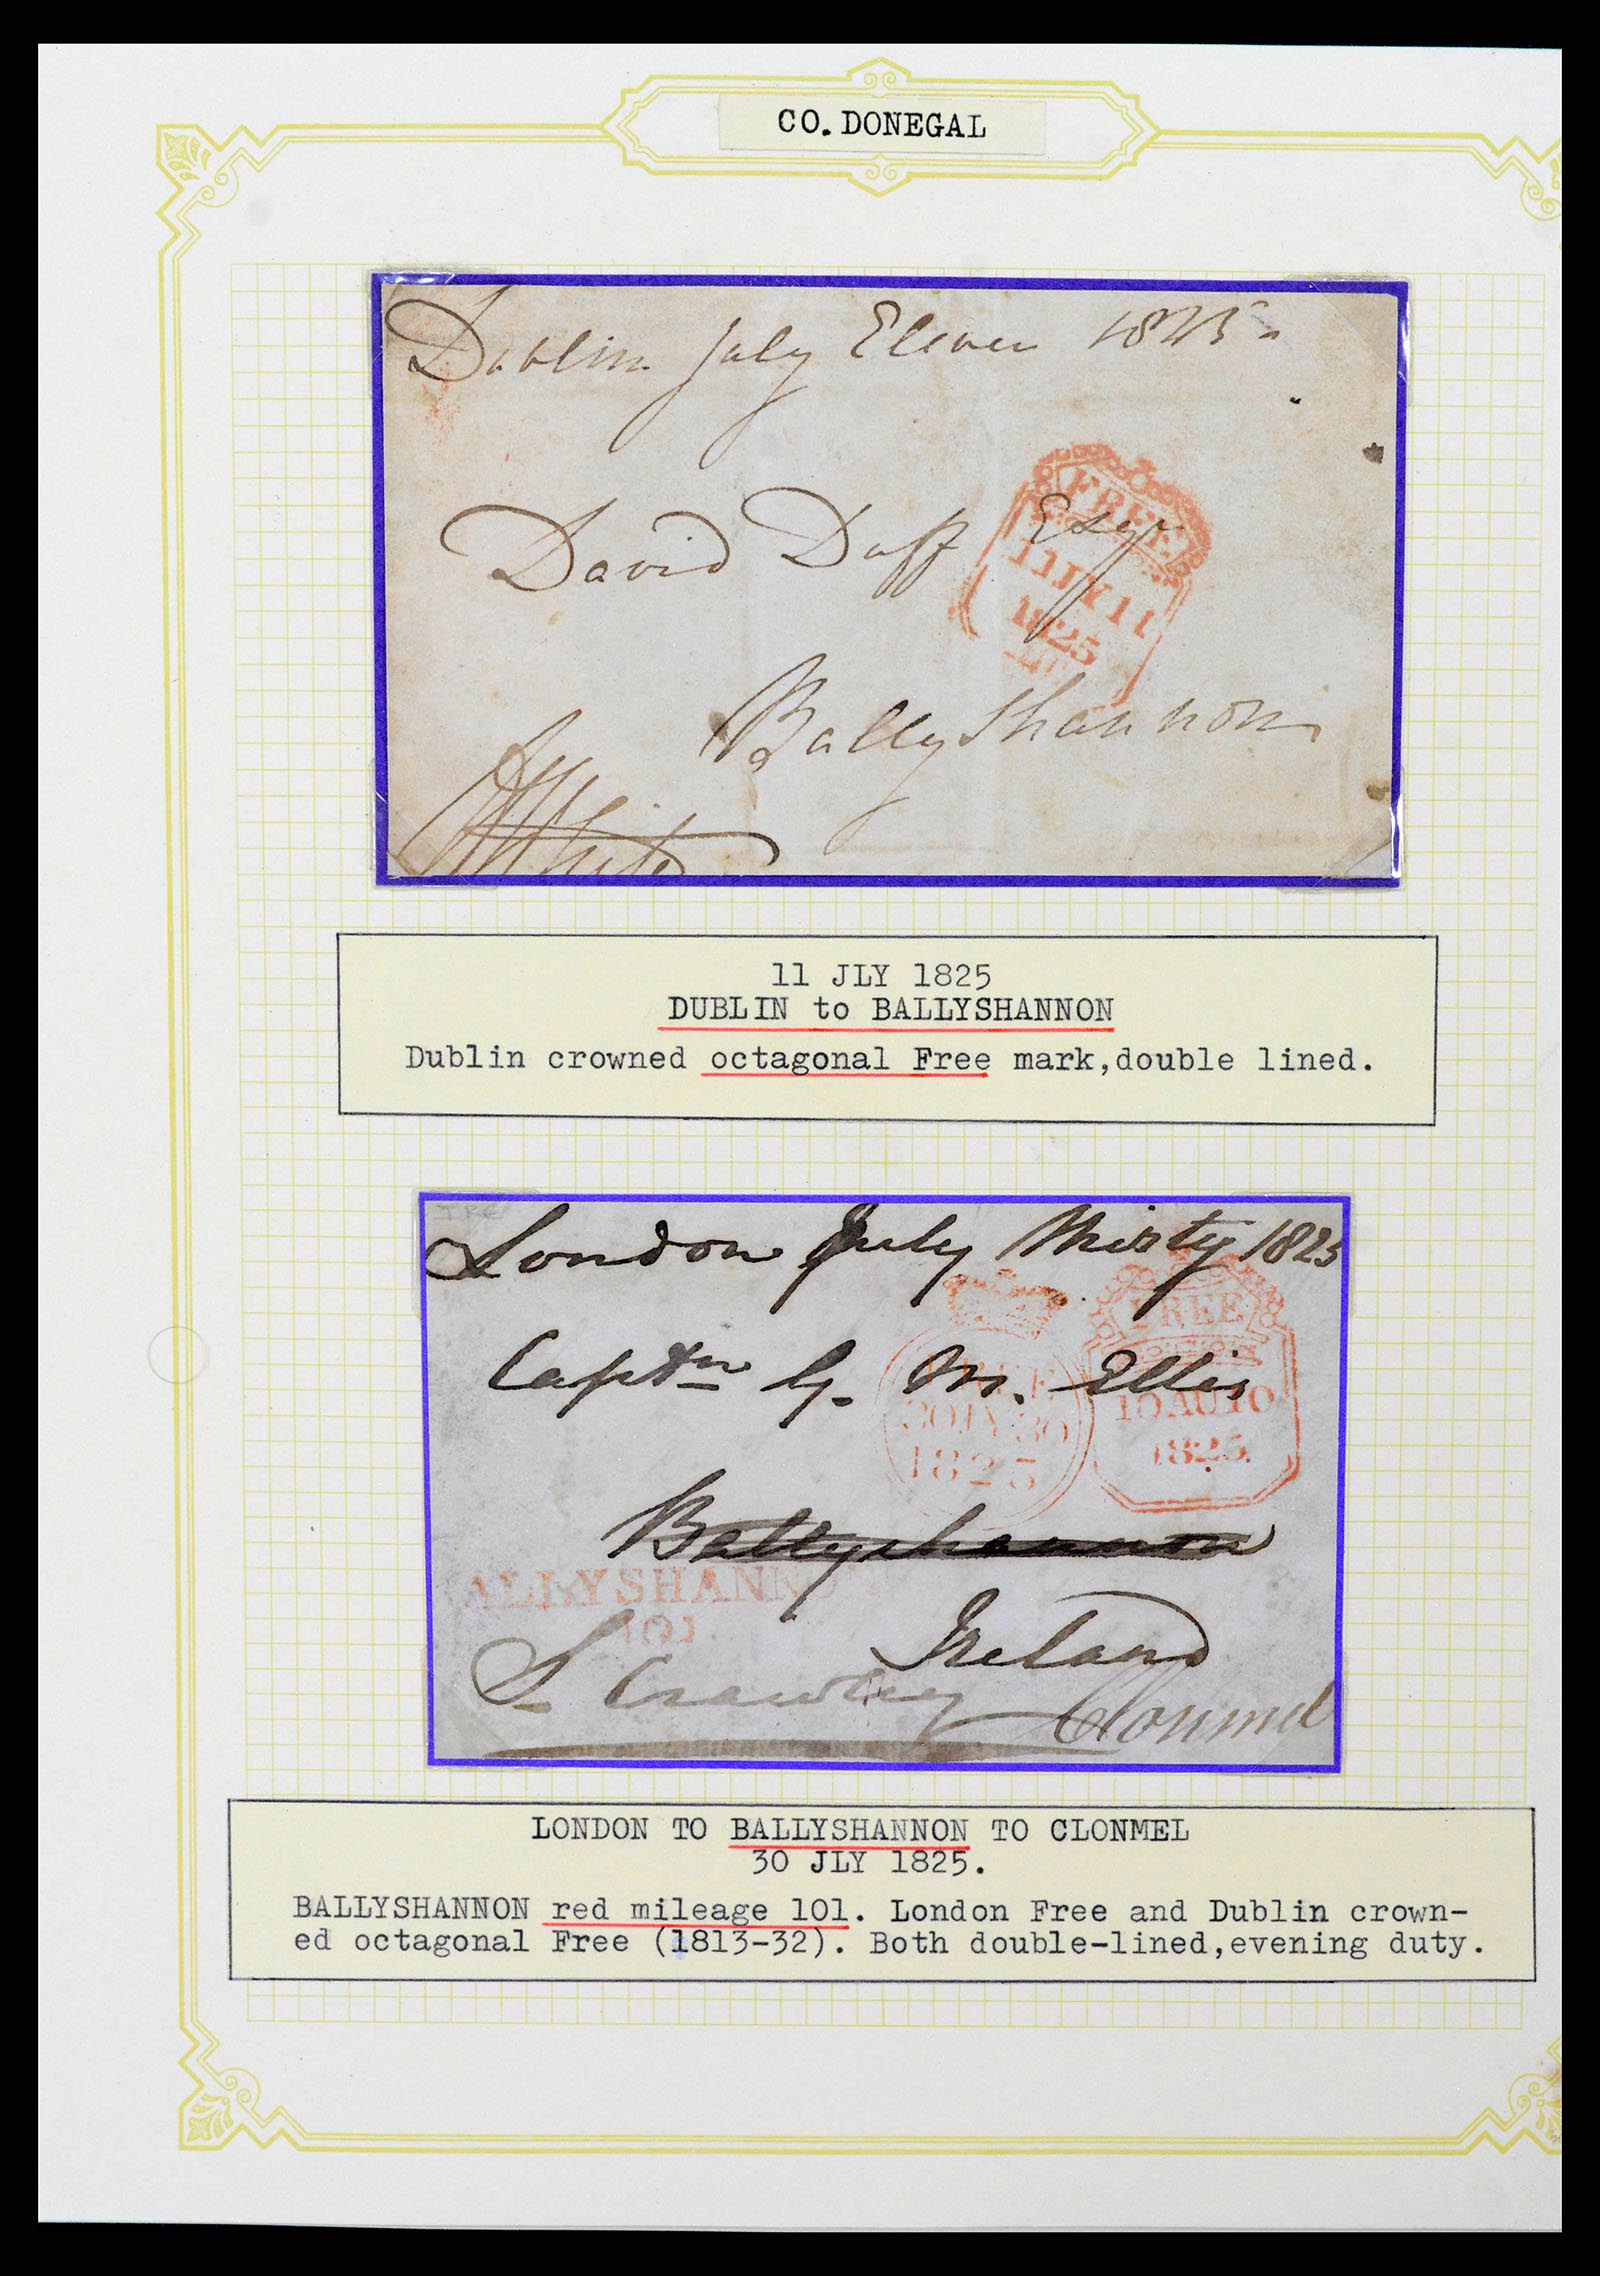 CO. DONEGAL
Dublin July Eleven 1825
David Duff Esqr
FREE
11 JY 11
1825
Ballyshannon
White
11 JLY 1825
DUBLIN to BALLYSHANNON
Dublin crowned octagonal Free mark,double lined.
IRE
London July Thirty 1825
FREE
Captn G. M. Ellis
FREE
30 JY 30
1825
10 AU 10
1825
Ballyshannon
ALLYSHANNON
101
Ireland
S Crawley
Clonmel
LONDON TO BALLYSHANNON TO CLONMEL
30 JLY 1825.
BALLYSHANNON red mileage 101. London Free and Dublin crown-
ed octagonal Free (1813-32). Both double-lined,evening duty.